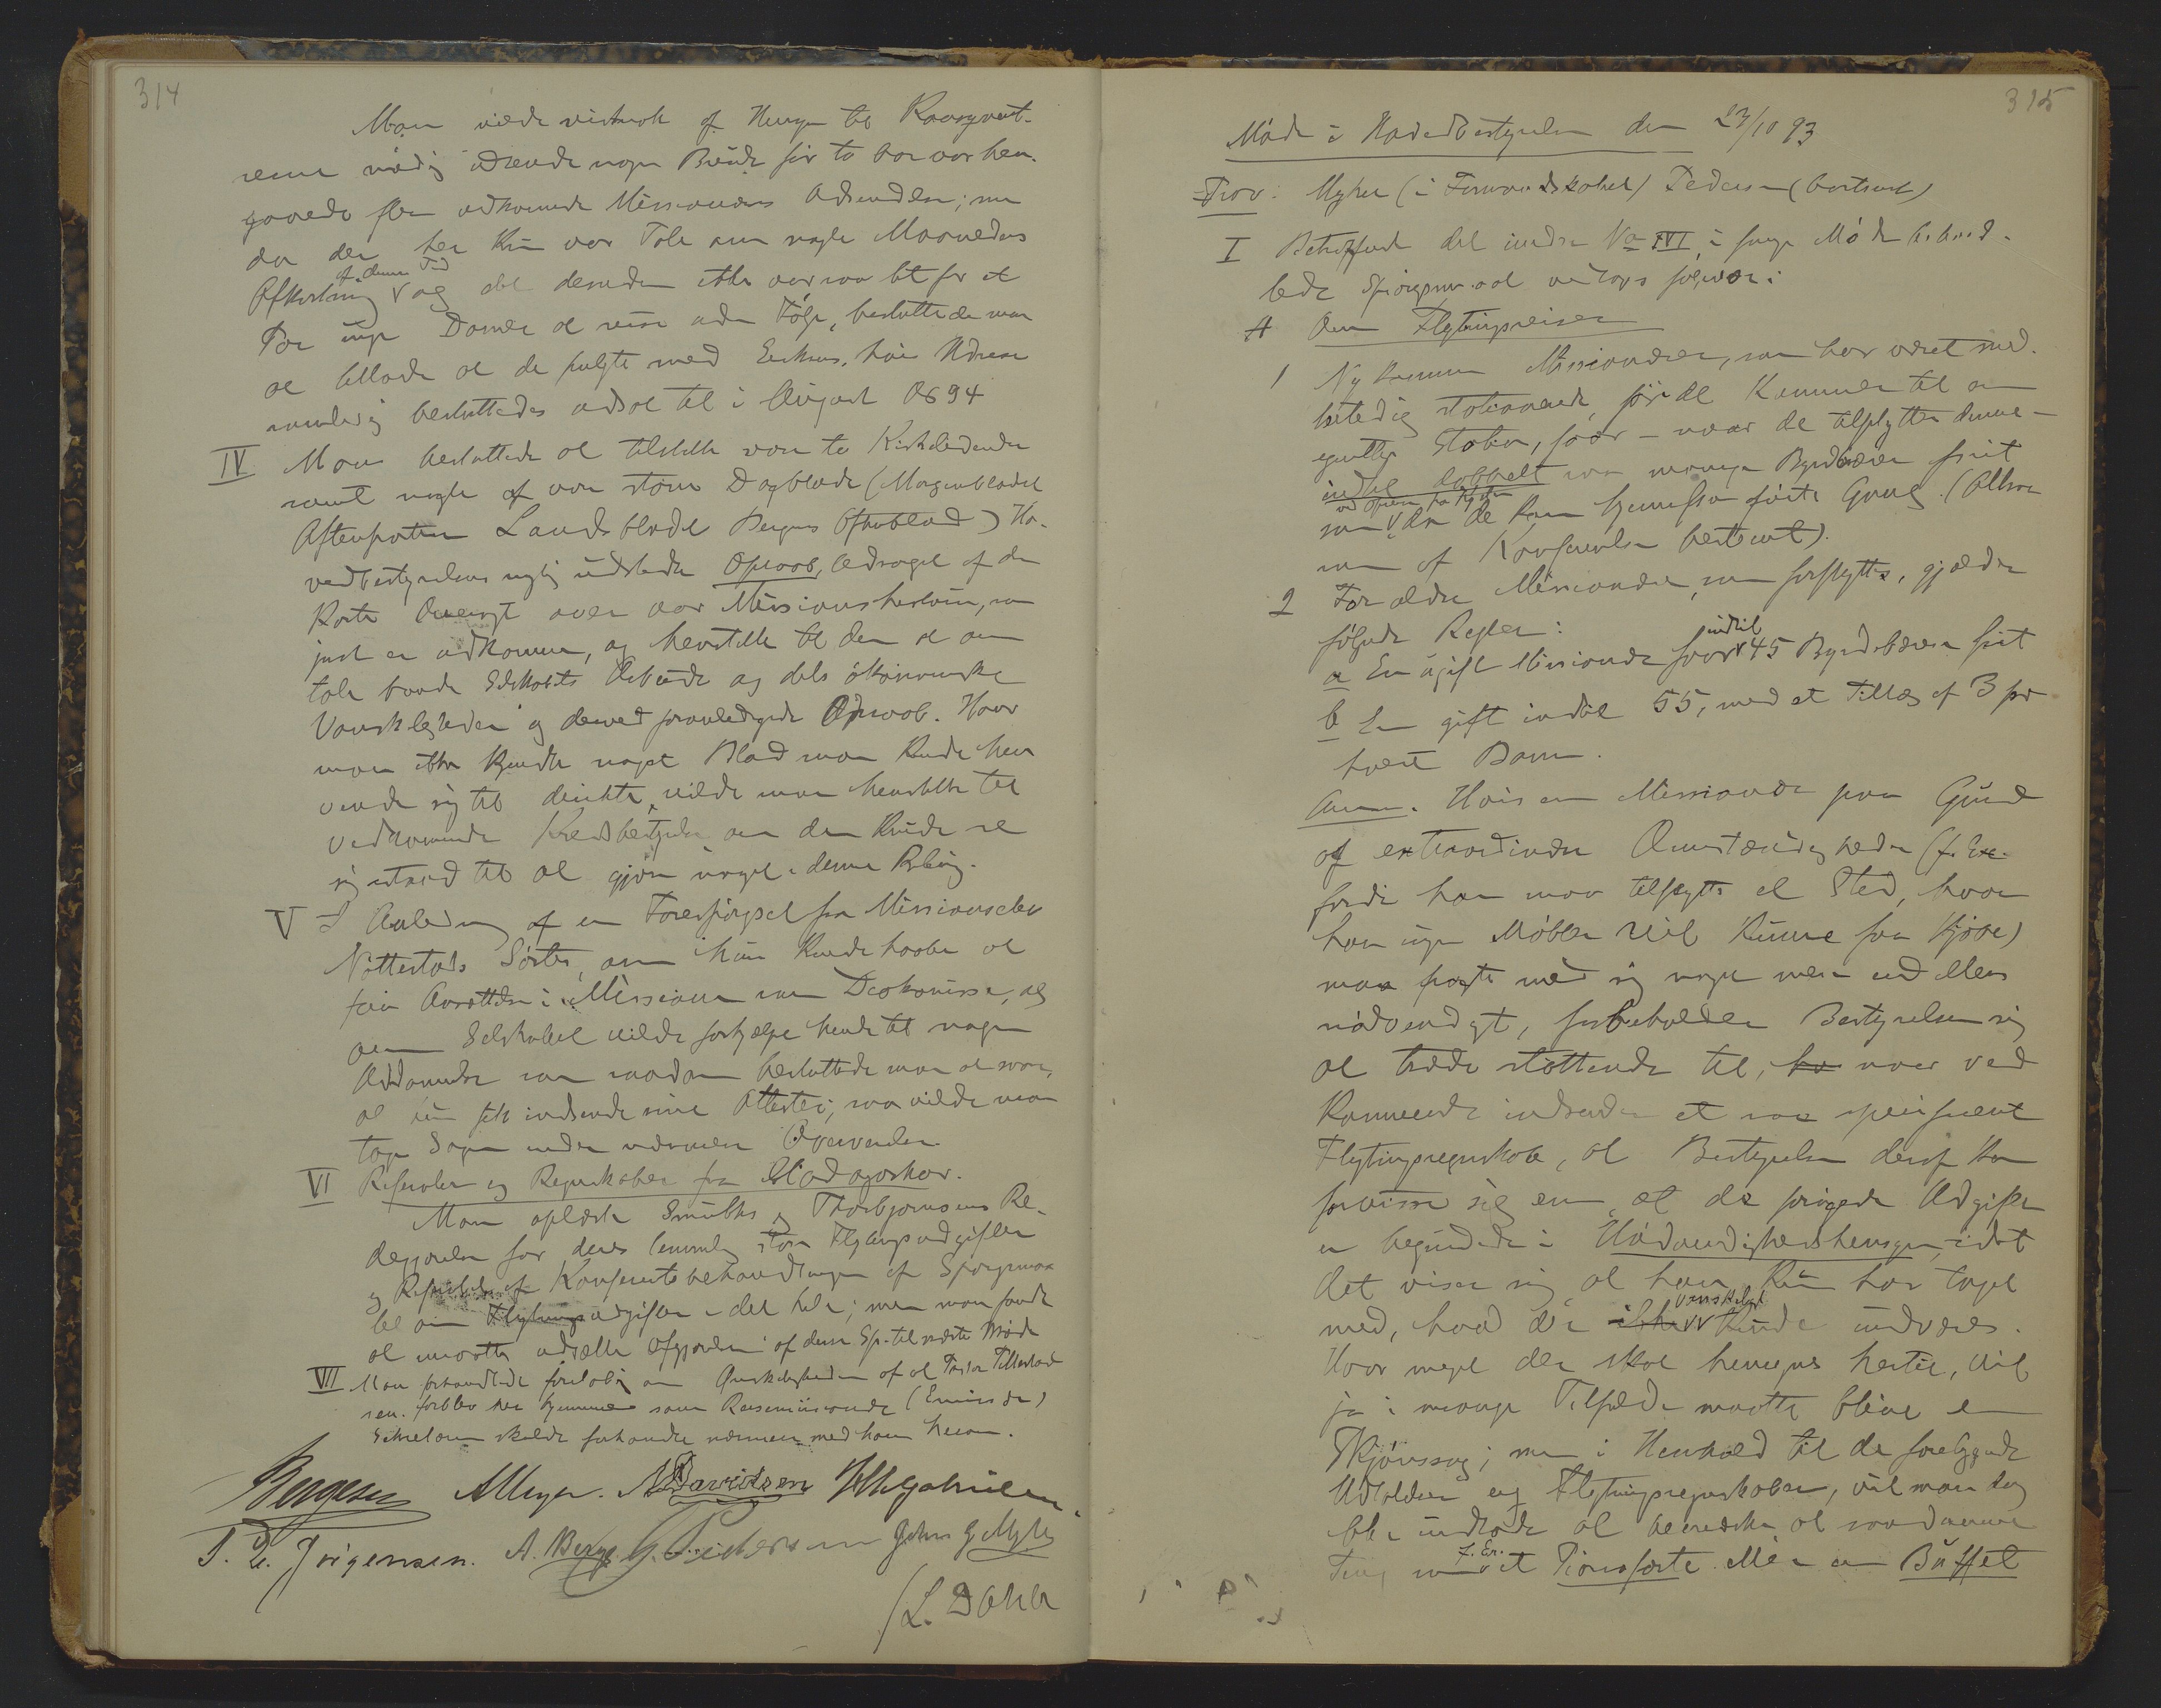 314
Man vilde vistnok af Hensyn til Kvargvart-
rerne nødig udsende nogen Brude før to Aar var hen-
gaaede efter vedkommende Missionærs Udsendelse; men
da der her kun var Tale om nogle Maaneders
Afkortning af denne Tid og det desuden ikke var saa let for et
Par unge Damer at reise uden Følge, besluttede man
at tillade at de fulgte med Eriksens, hvis Udreise
samtidig besluttedes udsat til i August 1894
IV Man besluttede at tilstille vore to Kirketidender
samt nogle af vore større Dagblade (Morgenbladet
Aftenposten Landsbladet Bergens Aftenblad) Ho-
vedbestyrelsens nylig udstedte Opraab, ledsaget af den
korte Oversigt over vor Missions historie, som
just er udkommen, og henstille til dem at om-
tale baade Selskabets Arbeide og dets økonomiske
Vanskeligheder og derved foranledigede Opraab. Hvor
man ikke kjendte noget Blad man kunde hen
vende sig til direkte, vilde man henstille til
vedkommende Kredsbestyrelse om den kunde se
sig istand til at gjøre noget i denne Retning.
V I Anledning af en Forespørgsel fra Missionselev
Nøttestads Søster, om hun kunde haabe at
faa Ansættelse i Missionen som Diakonisse, og
om Selskabet vilde forhjælpe hende til nogen
Uddannelse som saadan besluttede man at svare,
at hun fik indsende sine Attester; saa vilde man
tage Sagen under nærmere Overveielse.
VI Referater og Regnskaber fra Madagaskar.
Man oplæste Smiths og Thorbjørnsens Re-
degjørelse for deres temmelig store Flytningsudgifter
og Referatet af Konferentsbehandlingen af Spørgsmaa
let om Flytningsudgifter i det hele; men man fandt
at maatte udsætte Afgjørelsen af dette Sp. til næste Møde
VII Man forhandlede foreløbig om Ønskeligheden af at Pastor Tillestad
sen. forblev her hjemme som Reisemissionær (Emissær)
Sekretæren skulde forhandle nærmere med ham herom.
Borgesen A Meyer. A Davidsen
P. C. Jørgensen. A. Berge G. Pedersen John G Myhre
/L. Dahle
315
Møde i Hovedbestyrelsen den 23/10 93
Frav: Myhre (i Formandskabet) Pedersen (bortreist)
I Betræffende det under No VI i forrige Møde behand-
lede Spørgsmaal vedtoges følgende:
A Om Flytningsreiser
1 Nykomne Missionærer, som har været mid-
lertidig stationerede, før de kommer til sin
egentlige Station, faar – naar de tilflytter denne –
indtil dobbelt saa mange Byrdbærere frit
som de ved Opreisen fra Kysten kan hjemføre første Gang. (Altsaa
som af Konferentsen bestemt).
2 For ældre Missionærer, som forflyttes, gjælder
følgende Regler:
a En ugift Missionær faar indtil 45 Byrdebærere frit
b En gift indtil 55, med et Tillæg af 3 for
hvert Barn.
Anm. Hvis en Missionær paa Grund
af extraordinære Omstændigheder (f. Ex.
fordi han maa tilflytte et Sted, hvor
han ingen Møbler vil kunne faa kjøbe)
maa fragte med sig noget mere end ellers
nødvendigt, forbeholder Bestyrelsen sig
at træde støttende til, naar ved
kommende indsender et saa specificeret
Flytningsregnskab, at Bestyrelsen deraf kan
forvisse sig om, at de forøgede Udgifter
er begrundede i Nødvendighedshensyn, idet
det viser sig at han kun har taget
med, hvad der vanskelig kunde undværes.
Hvor meget der skal henregnes hertil, vil
jo i mange Tilfælde maatte blive en
Skjønssag; men i Henhold til de foreliggende
Udtalelser og Flytningsregnskaber, vil man dog
ikke undlade at bemærke at saadanne
Ting som f. Ex. et Pianoforte eller en Buffet